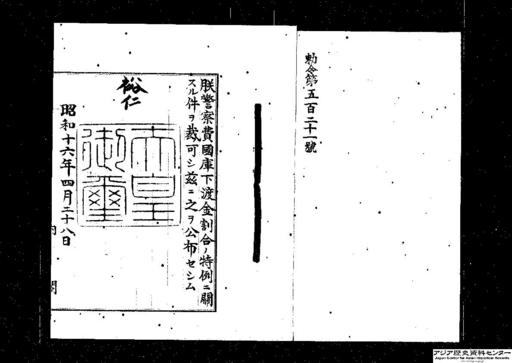 勅令第五百二十一號
朕警察費國庫下渡金割合ノ特例ニ關
スル件ヲ裁可シ茲ニ之ヲ公布セシム
裕仁
天皇
御璽
昭和十六年四月二十八日
内閣
アジア歴史資料センター
Japan Center for Asian Historical Records